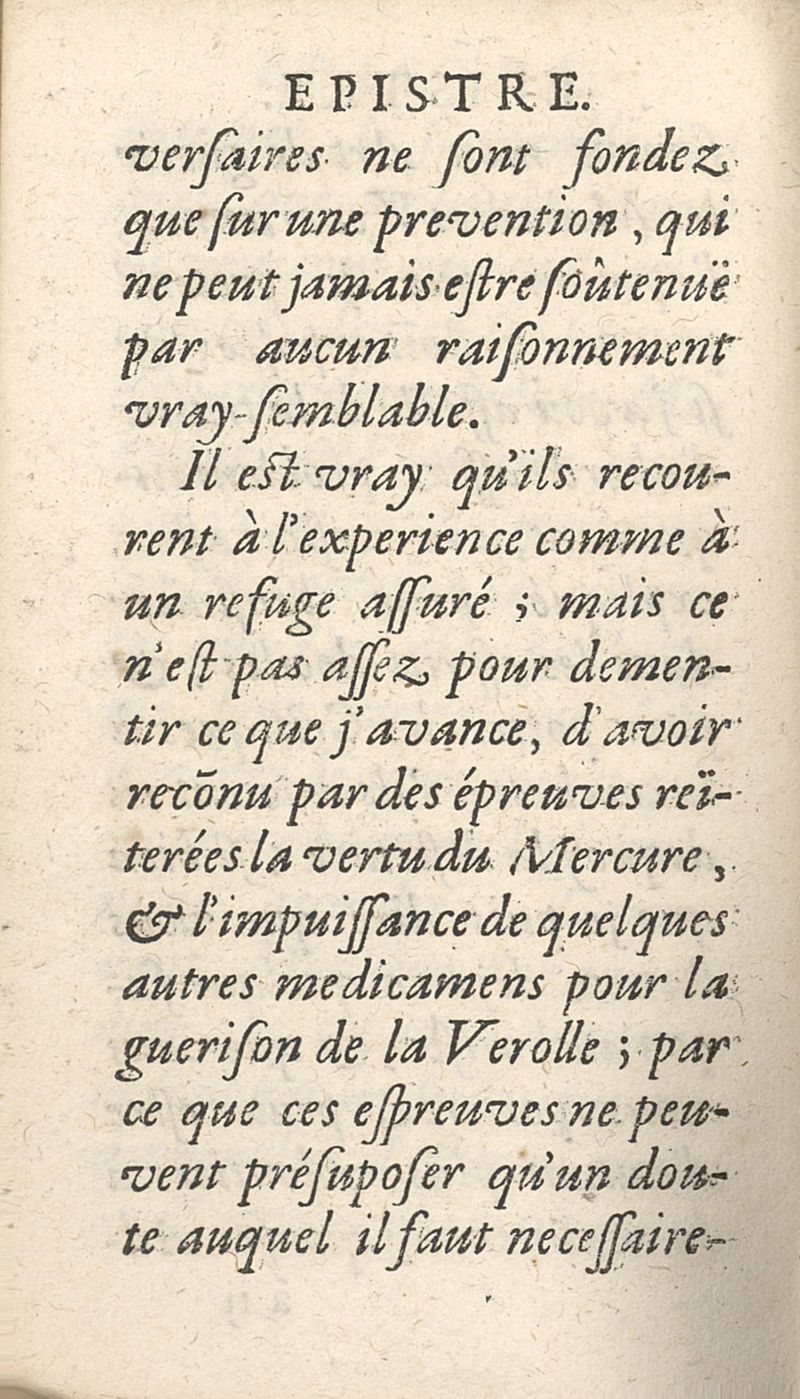 EPISTRE.
verſaires ne ſont fondez
que ſur une prevention, qui
ne peut jamais eſtre ſoûtenuë
par aucun raiſonnement
vray-ſemblable.
Il eſt vray qu'ils recou-
rent à l'experience comme à
un refuge aſſuré ; mais ce
n'eſt pas aſſez pour demen-
tir ce que j'avance, d'avoir
recōnu par des épreuves reï-
terées la vertu du Mercure,
& l'impuiſſance de quelques
autres medicamens pour la
gueriſon de la Verolle ; par
ce que ces eſpreuves ne peu-
vent préſupoſer qu'un dou-
te auquel il faut neceſſaire-